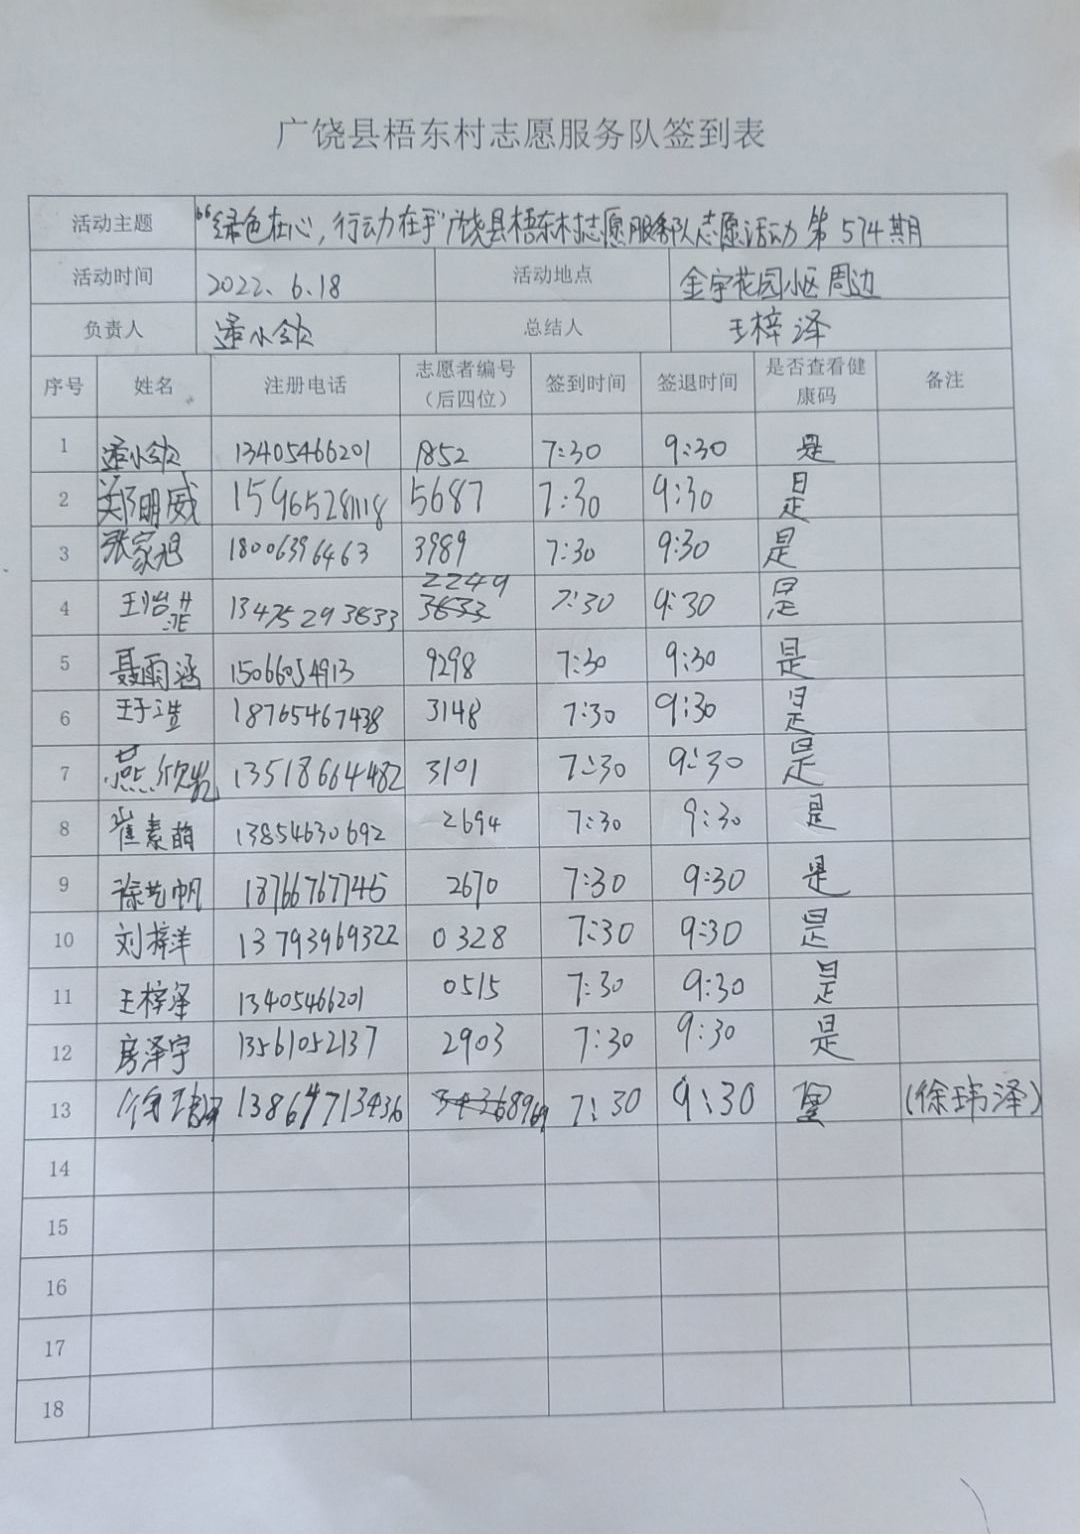 广饶县梧东村志愿服务队签到表
活动主题 “绿色在心，行动在手”广饶县梧东村志愿服务队志愿活动 第574期
活动时间 2022.6.18 活动地点 金宇花园小区周边
负责人 总结人 王梓泽
序号 姓名 注册电话 志愿者编号（后四位） 签到时间 签退时间 是否查看健康码 备注
1 13405466201 1852 7:30 9:30 是
2 郑明威 15965281118 5687 7:30 9:30 是
3 张家旭 18006396463 3989 7:30 9:30 是
4 王怡菲 13475293833 2249 7:30 9:30 是
5 聂雨涵 15066054913 9298 7:30 9:30 是
6 18765467438 3148 7:30 9:30 是
7 13518664482 3101 7:30 9:30 是
8 崔素萌 13854630692 2694 7:30 9:30 是
9 徐艺帆 18766767745 2670 7:30 9:30 是
10 刘梓洋 13793969322 0328 7:30 9:30 是
11 王梓泽 13405466201 0515 7:30 9:30 是
12 房泽宇 13561052137 2903 7:30 9:30 是
13 13864713436 7:30 9:30 (徐玮泽)
14
15
16
17
18